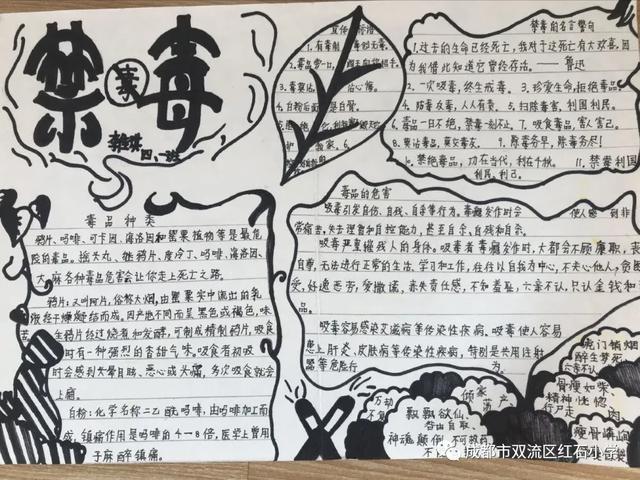 禁毒
四、一班
宣传标语
禁毒的名言警句
1.过去的生命已经死亡，我对于这死亡有大欢喜，因
为我借此知道它曾经存活。——鲁迅
2.一次吸毒，终生戒毒。3.珍爱生命，拒绝毒品。
4.防毒反毒，人人有责。5.扫除毒害，利国利民。
6.毒品一日不绝，禁毒一刻不止。7.吸食毒品，害人害己。
8.莫沾毒品，莫交毒友。9.除毒务早，除毒务尽！
10.禁绝毒品，功在当代，利在千秋。11.禁毒利国
利民，利己。
毒品种类
鸦片、吗啡、可卡因、海洛因和罂粟植物等是最危
险的毒品。摇头丸、鸦片、度冷丁、吗啡、海洛因、
大麻各种毒品危害会让你走上死亡之路。
鸦片：又叫阿片，俗称大烟，由罂粟实中流出的乳
液经干燥凝结而成。因产地不同而呈黑色或褐色，味
苦。生鸦片经过烧煮和发酵，可制成精制鸦片，吸食
时有一种强烈的香甜气味。吸食者初吸
时会感到头晕目眩、恶心或头痛，多次吸食就会
上瘾。
白粉：化学名称二乙酰吗啡，由吗啡加工而
成，镇痛作用是吗啡的4—8倍，医学上曾用
于麻醉镇痛。
毒品的危害
吸毒引发自伤、自残、自杀等行为。毒瘾发作时会使人感到非
常痛苦，失去理智和自控能力，甚至自杀、自残和自杀。
吸毒严重摧残人的身体。吸毒者毒瘾发作时，大都会不顾廉耻，丧
自尊，无法进行正常的生活、学习和工作，往往以自我为中心，不关心他人，贪
受，好逸恶劳，爱撒谎，未负责任感，不知羞耻，六亲不认，只认金钱和
品。
吸毒容易感染艾滋病等传染性疾病，吸毒使人容易
患上肝炎、皮肤病等传染性疾病，特别是共用注射
器等危险行为
虎门销烟
醉生梦死
六亲不认
骨瘦如柴
精神恍惚
行尸走肉
瘦骨嶙峋
倾家
荡产
飘飘欲仙
神魂颠倒
成都市双流区红石小学